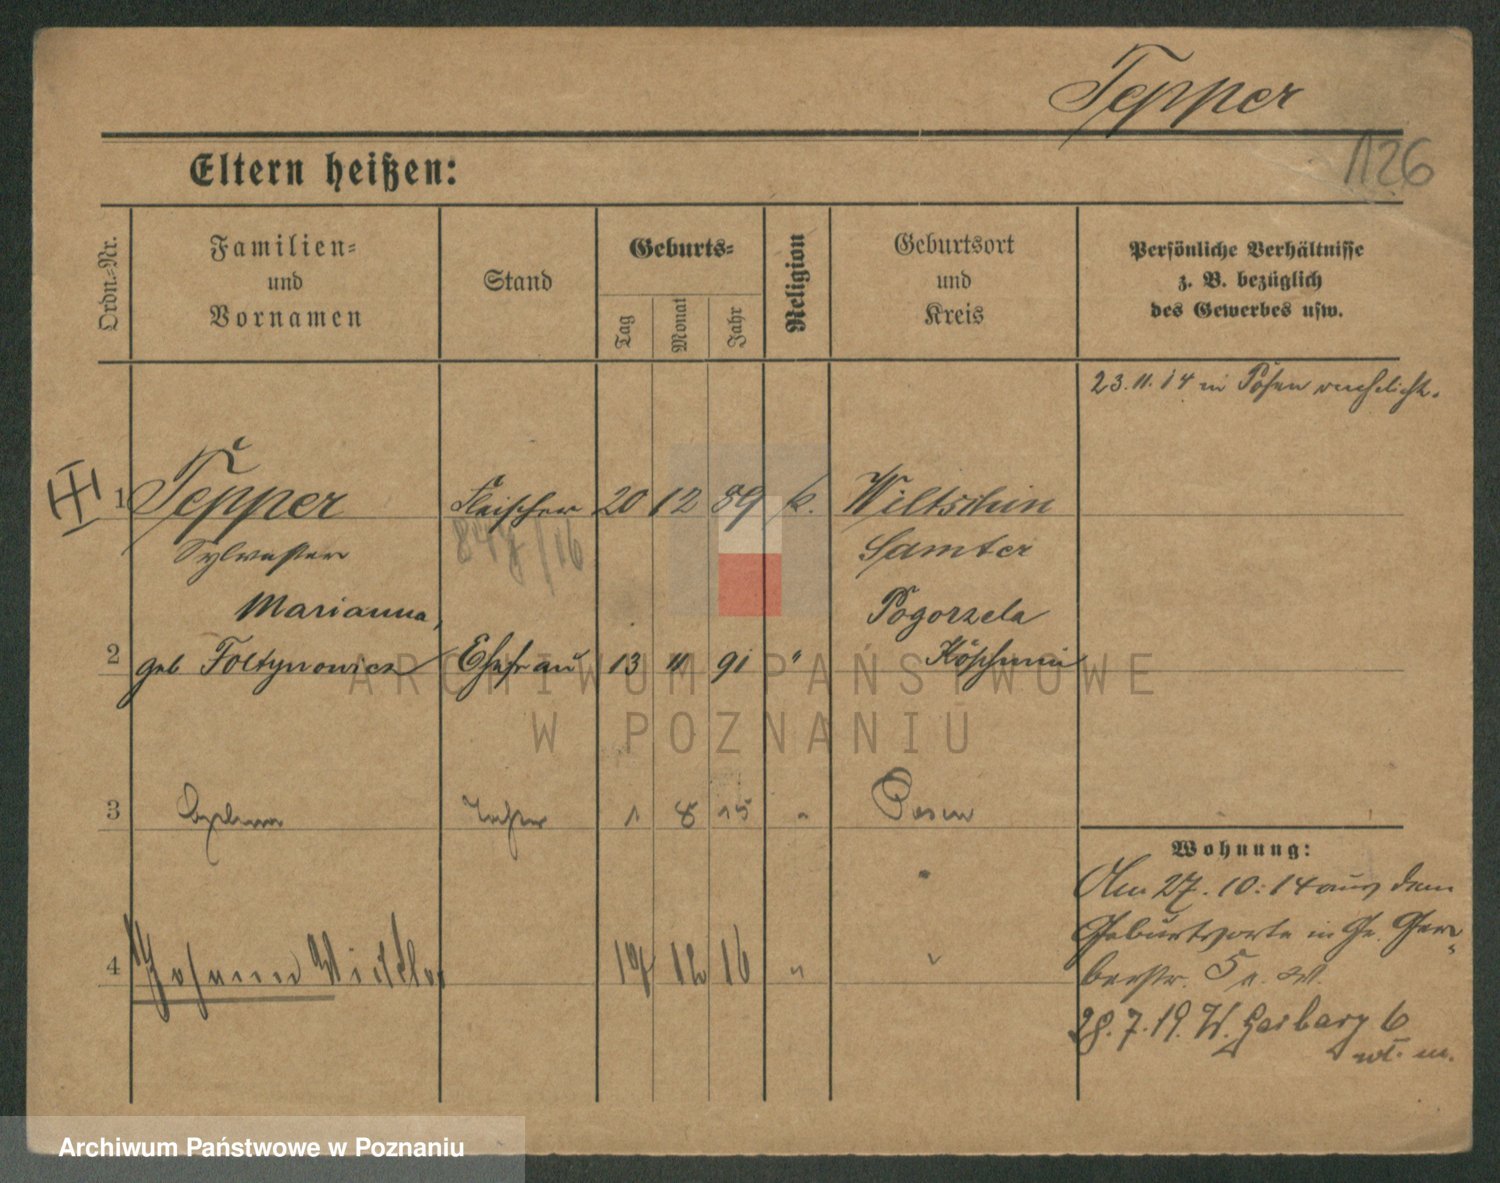 Tepper
1126
Eltern heißen:
Ordn.-Nr.
Familien-
und
Vornamen
Stand
Geburts-
Tag
Monat
Jahr
Religion
Geburtsort
und
Kreis
Persönliche Verhältnisse
z. B. bezüglich
des Gewerbes usw.
23.11.14 in Posen verehelicht.
1 Tepper Fleischer 20 12 89 k. Wiltschin
Sylvester 848/16 Samter
Marianna, Pogorzela
2 geb Foltynowicz Ehefrau 13 11 91 " Köschmin
ARCHIWUM PAŃSTWOWE
W POZNANIU
3 Tochter 1 8 15 " Posen
Wohnung:
Am 27.10.14 aus dem
Geburtsorte in Gr. Ger-
berstr. 5 n. W.
4 Johann 17 12 16 " "
28.7.19. W. Garbary 6
wt. m.
Archiwum Państwowe w Poznaniu